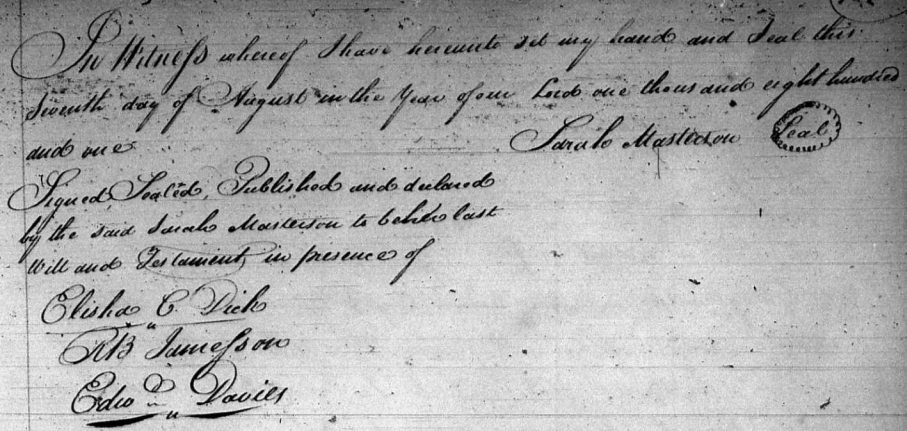 In Witness whereof I have hereunto set my hand and Seal this
Seventh day of August in the Year of our Lord one thousand eight hundred
and one Sarah Masterson Seal
Signed, Sealed, Published and declared
by the said Sarah Masterson to be her last
Will and Testament, in presence of
Elisha C. Dick
RB Jamesson
Edwd Davies